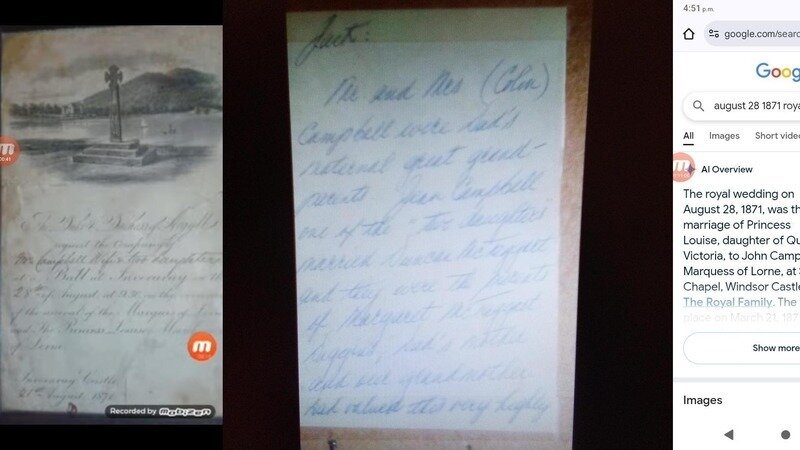 The Duke & Duchess of Argyll
request the Company of
Mr Campbell Wife & two Daughters
at a Ball at Inveraray on the
28th of August at 9.30 on the
of the arrival of the Marquis of Lorne
and The Princess Louise
of Lorne.
Inveraray Castle
21st August, 1871
Recorded by mobizen
Jack:
Mr and Mrs (Colin)
Campbell were Dad's
maternal great grand-
parents Campbell
one of the "two daughters"
married Duncan
and they were the parents
of Margaret
Dad's mother
and our grandmother
Dad valued this very highly
4:51 p.m.
google.com/searc
Goog
august 28 1871 roya
All Images Short video
AI Overview
The royal wedding on
August 28, 1871, was th
marriage of Princess
Louise, daughter of Qu
Victoria, to John Camp
Marquess of Lorne, at S
Chapel, Windsor Castle
The Royal Family. The
place on March 21, 187
Show more
Images